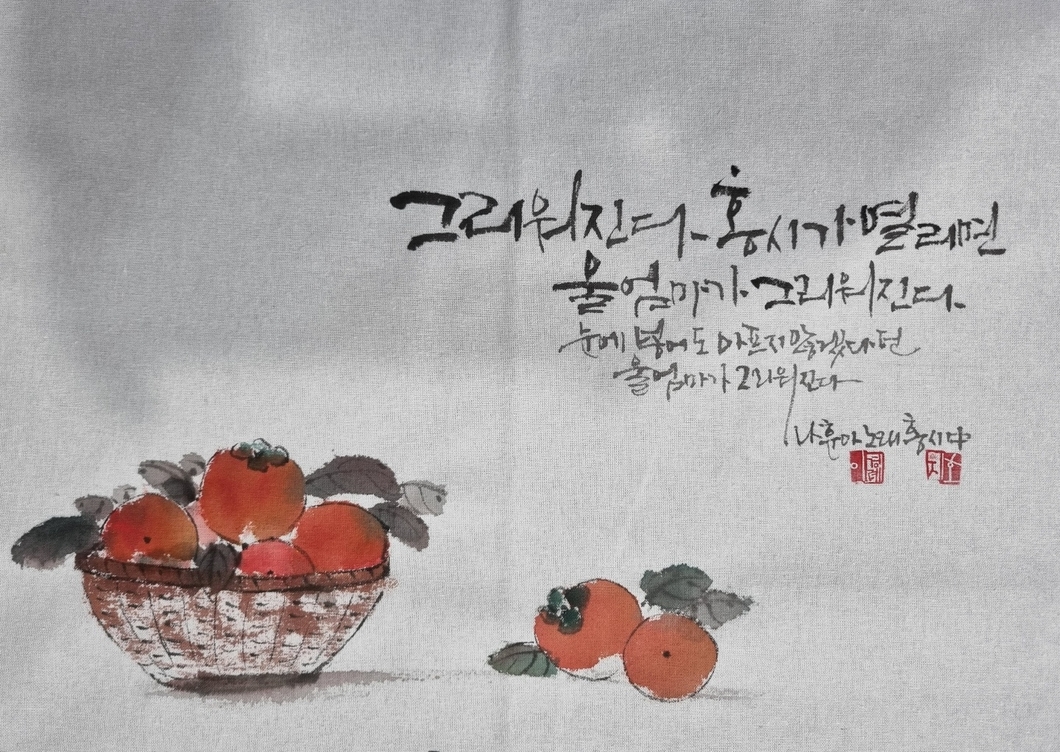 그리워진다. 홍시가 열리면
울엄마가 그리워진다.
눈에 넣어도 아프지 않겠다던
울엄마가 그리워진다
나훈아 노래 홍시 中